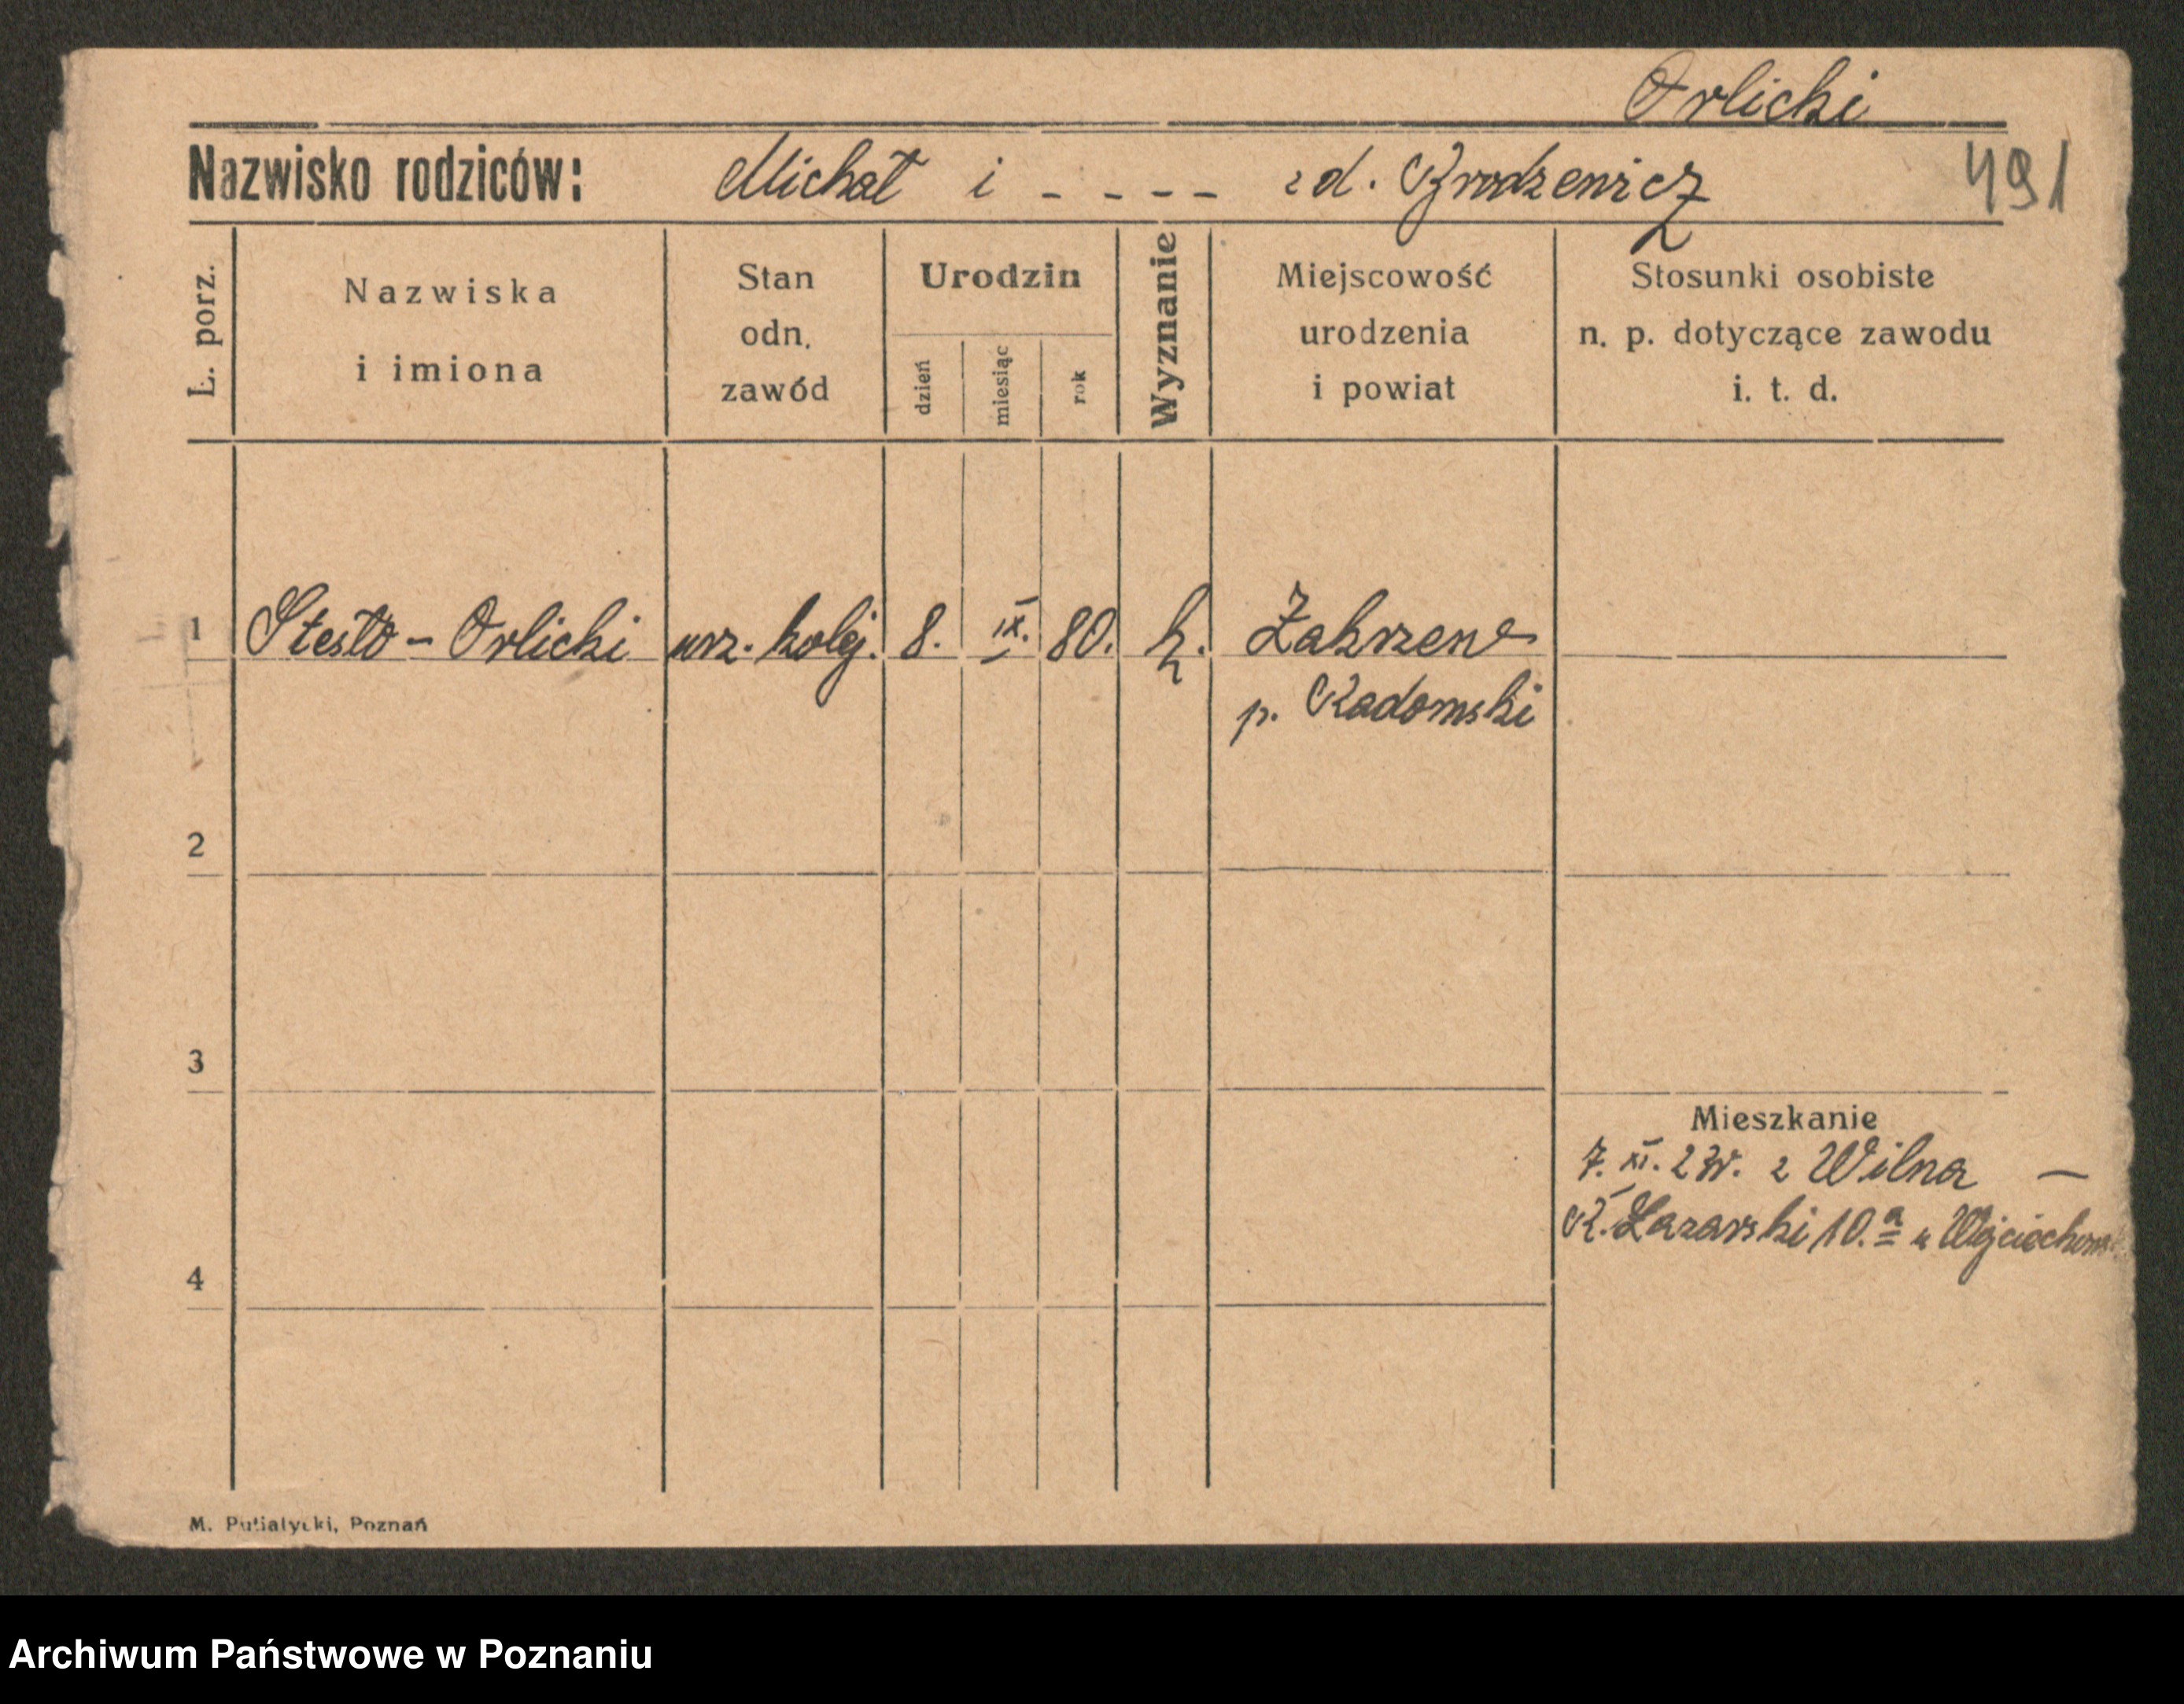 Orlicki
Nazwisko rodziców: Michał i - - - - zd. Brodzewicz 491
Ł. porz.
Nazwiska
i imiona
Stan
odn.
zawód
Urodzin
dzień
miesiąc
rok
Wyznanie
Miejscowość
urodzenia
i powiat
Stosunki osobiste
n. p. dotyczące zawodu
i. t. d.
1 Orlicki urz. kolej. 8. IX. 80. k. Zakrzew
p. Radomski
2
3
Mieszkanie
7. XI. z Wilna —
R. Łazarski 10.a u
4
M. Putiatycki, Poznań
Archiwum Państwowe w Poznaniu